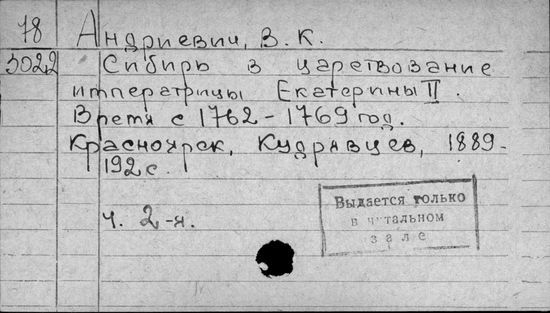 78 Андриевич, В. К.
3022 Сибирь в царствование
императрицы Екатерины II.
Время с 1762-1769 год.
Красноярск, Кудрявцев, 1889-
192 с.
ч. 2-я.
Выдается только
в читальном
зале